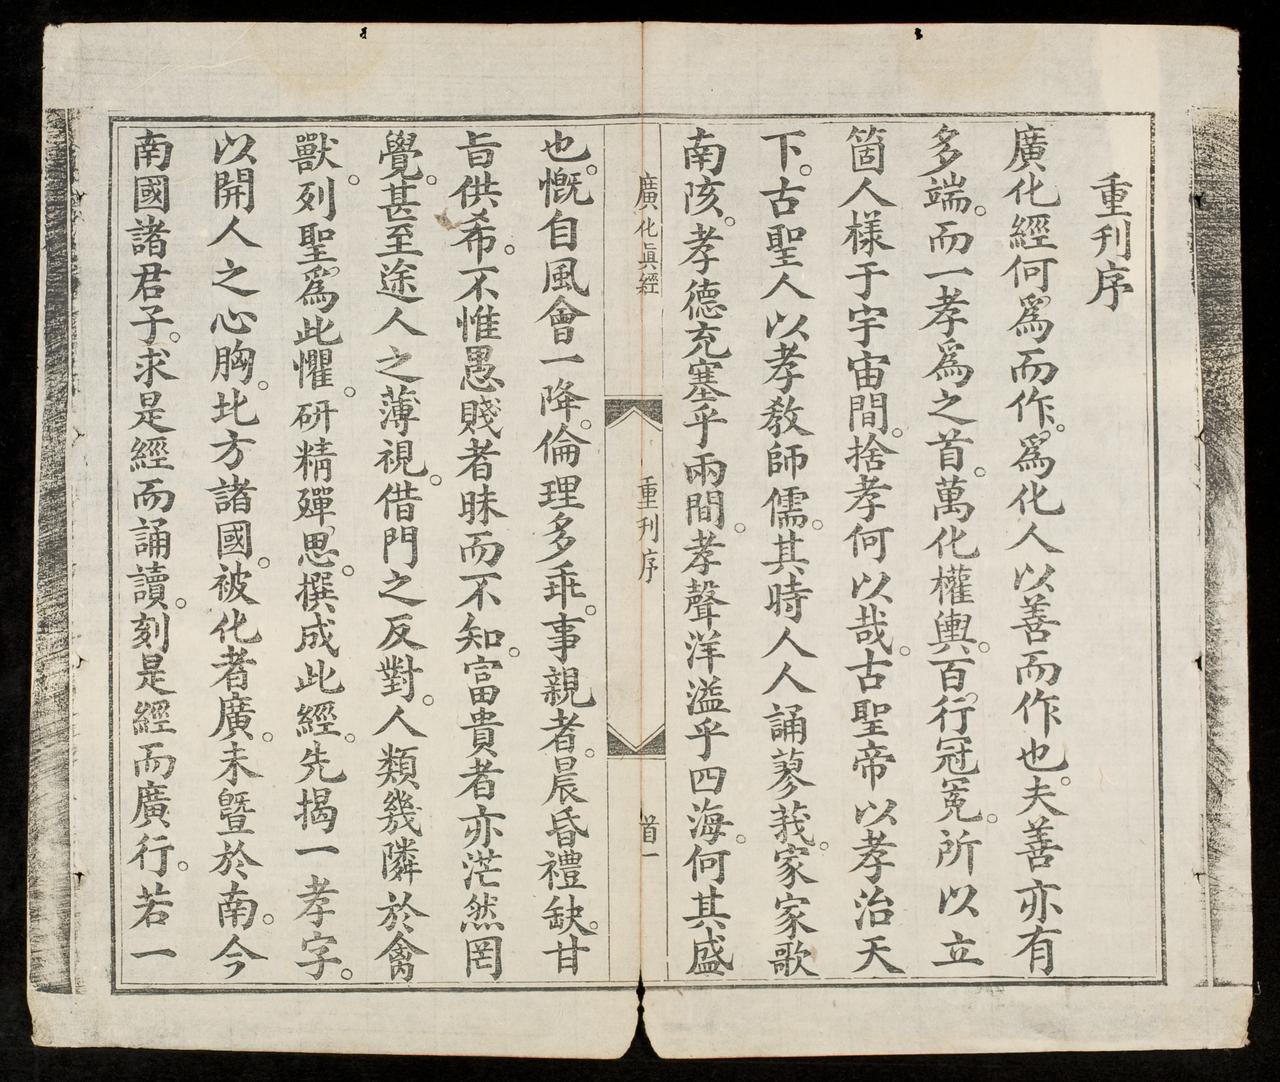 重刊序
廣化經何爲而作。爲化人以善而作也。夫善亦有
多端。而一孝爲之首。萬化權輿。百行冠冕。所以立
箇人樣于宇宙間。捨孝何以哉。古聖帝以孝治天
下。古聖人以孝教師儒。其時人人誦蓼莪。家家歌
南陔。孝德充塞乎兩間。孝聲洋溢乎四海。何其盛
廣化眞經
重刊序
首一
也。慨自風會一降。倫理多乖。事親者。晨昏禮缺。甘
旨供希。不惟愚賤者昧而不知。富貴者亦茫然罔
覺。甚至途人之薄視。借門之反對。人類幾隣於禽
獸。列聖爲此懼。研精殫思。撰成此經。先揭一孝字。
以開人之心胸。北方諸國。被化者廣。未曁於南。今
南國諸君子。求是經而誦讀。刻是經而廣行。若一